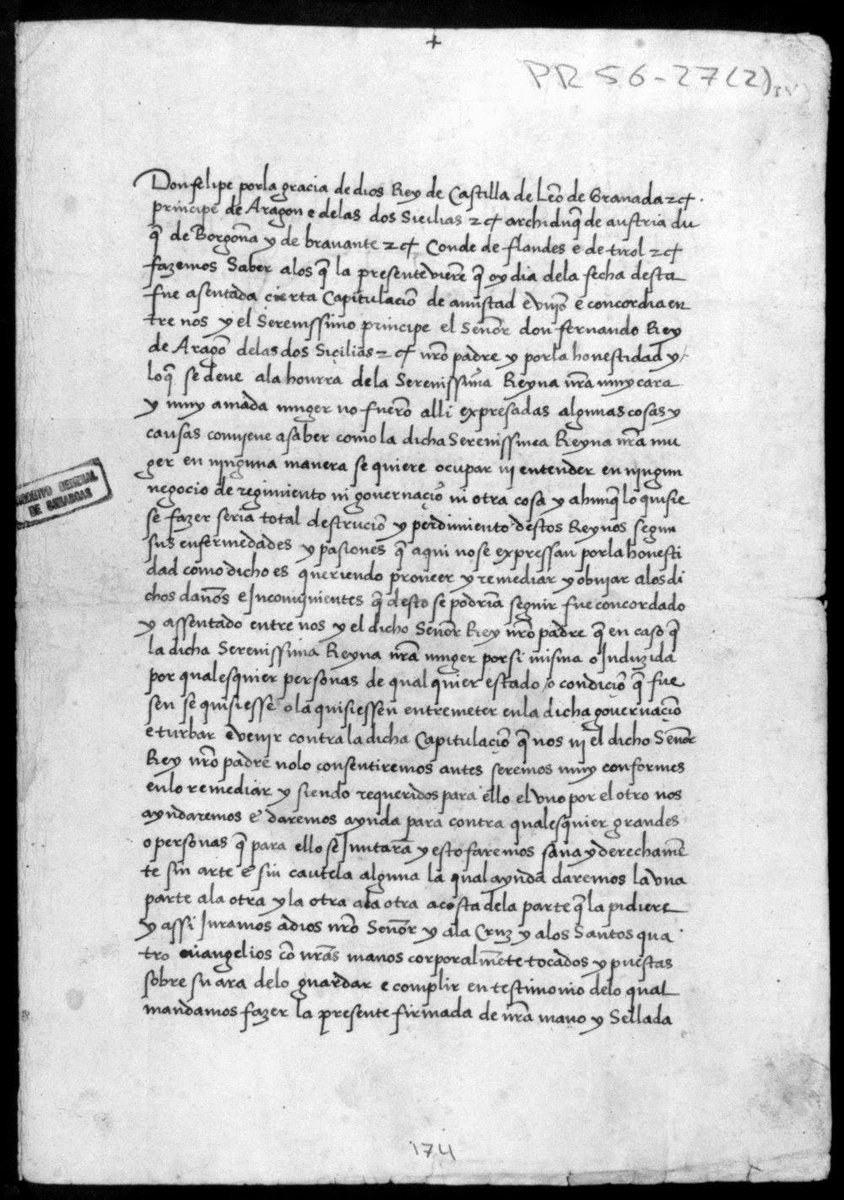 +
PR 56-27(2)
Don felipe por la gracia de dios Rey de Castilla de Leō de Granada ⁊c̄ .
principe de Aragon e delas dos Sicilias ⁊c̄ archiduq̄ de austria du
q̄ de Borgoña y de bravante ⁊c̄ Conde de flandes e de tirol ⁊c̄
fazemos Saber alos q̄ la presente vierē q̄ oy dia dela fecha desta
fue asentada cierta Capitulaciō de amistad e vniō e concordia en
tre nos y el Serenissimo principe el Señor don fernando Rey
de Aragō delas dos Siçilias ⁊c̄ nr̄o padre y porla honestidad y
loq̄ se deve ala honrra dela Serenissima Reyna nr̄a muy cara
y muy amada muger no fuerō alli expresadas algunas cosas y
causas conviene a saber como la dicha Serenissima Reyna nr̄a mu
ger en ninguna manera se quiere ocupar ni entender en ningun
negocio de regimiento ni governaçiō ni otra cosa y ahunq̄ lo quisie
se fazer seria total destruciō y perdimiento destos Reynos segun
sus enfermedades y pasiones q̄ aqui no se expressan porla honesti
dad como dicho es queriendo proveer y remediar y obviar alos di
chos daños e Inconvinientes q̄ desto se podrian seguir fue concordado
y assentado entre nos y el dicho Señor Rey nr̄o padre q̄ en caso q̄
la dicha Serenissima Reyna nr̄a muger por si misma o Induzida
por qualesquier personas de qual quier estado o condiciō q̄ fue
sen se quisiesse o la quisiessen entremeter enla dicha governaçiō
e turbar e venir contra la dicha Capitulaçiō q̄ nos ni el dicho Señor
Rey nr̄o padre nolo consentiremos antes seremos muy conformes
enlo remediar y siendo requeridos para ello el vno por el otro nos
ayudaremos e daremos ayuda para contra qualesquier grandes
o personas q̄ para ello se Juntarā y esto faremos sana y derechamē
te sin arte e sin cautela alguna la qual ayuda daremos la vna
parte ala otra y la otra ala otra acosta dela parte q̄ la pidiere
y assi Juramos a dios nr̄o Señor y ala Cruz y alos Santos qua
tro evangelios cō nr̄as manos corporalmēte tocados y puestas
sobre su ara delo guardar e complir en testimonio delo qual
mandamos fazer la presente firmada de nr̄a mano y Sellada
ARCHIVO GENERAL
DE SIMANCAS
174